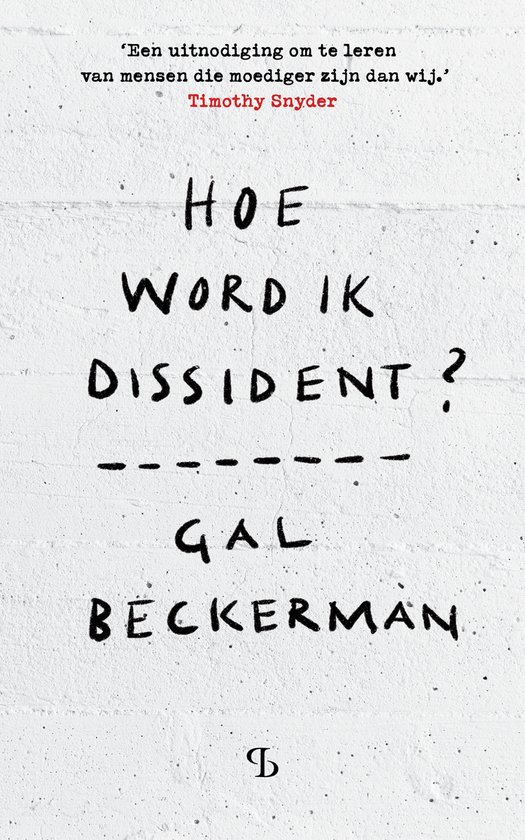 ‘Een uitnodiging om te leren
van mensen die moediger zijn dan wij.’
Timothy Snyder
HOE
WORD IK
DISSIDENT?
GAL
BECKERMAN